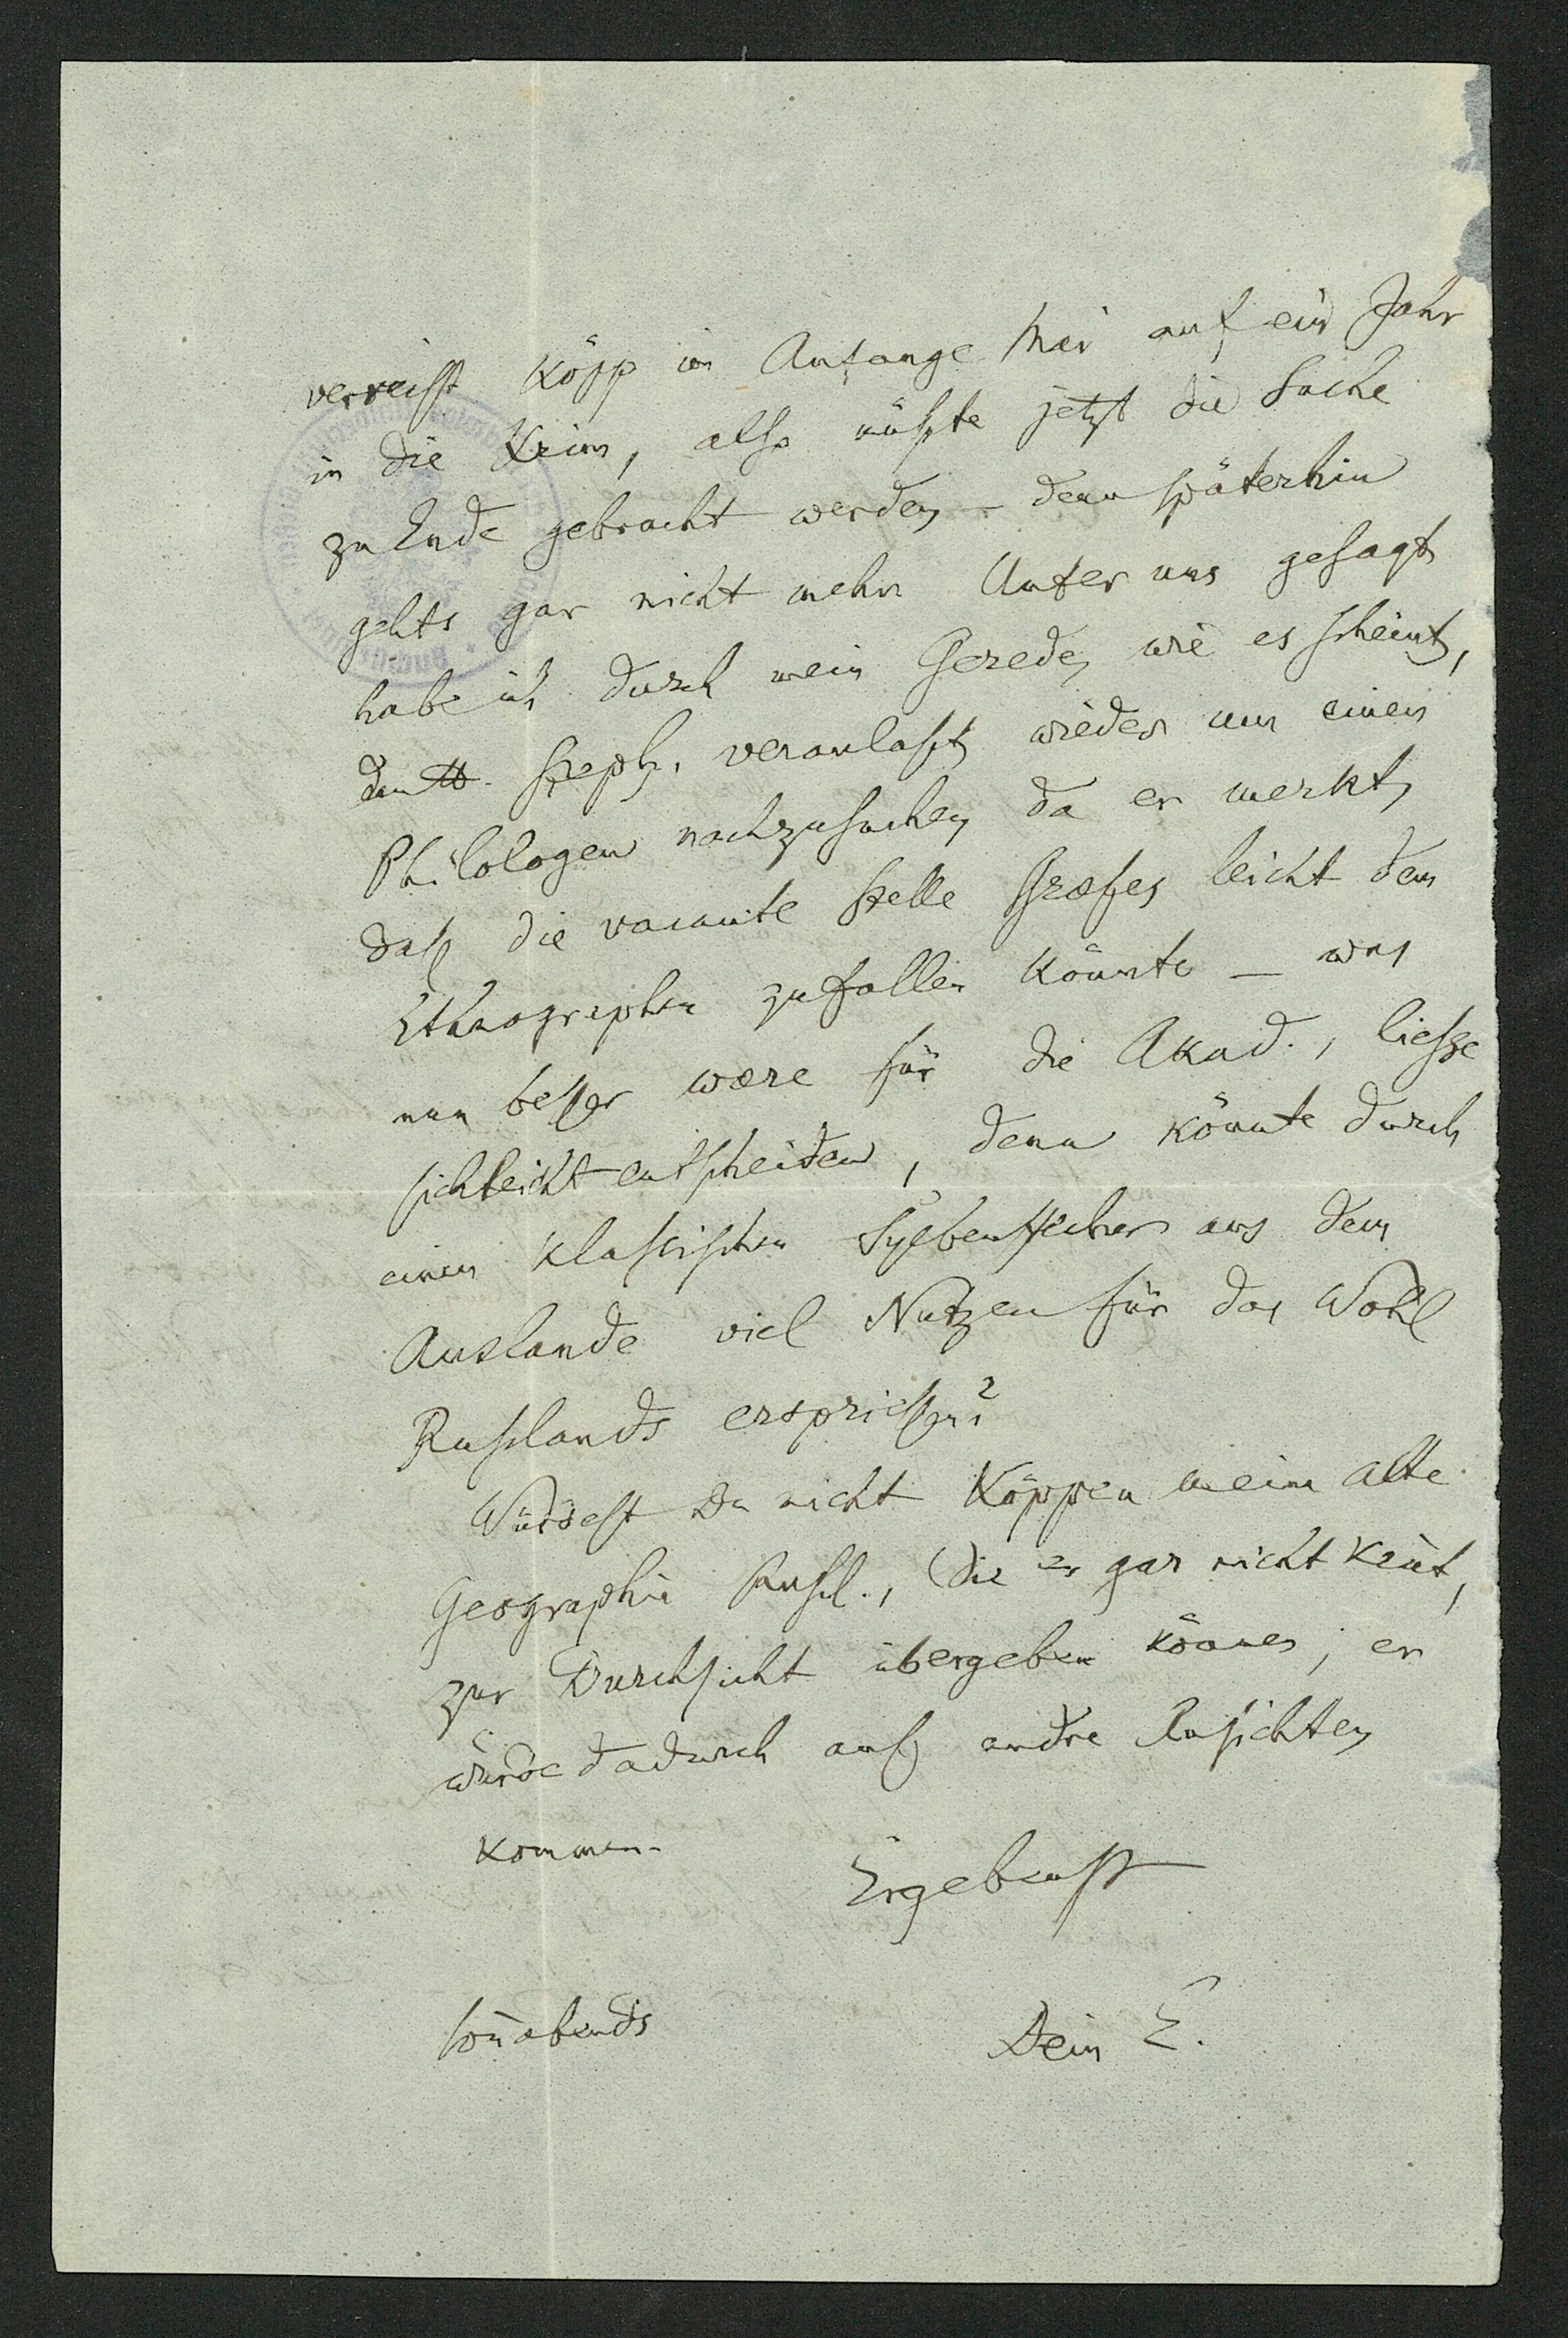 verreist Köpp im Anfange Mai auf ein Jahr
in die Krim, also müßte jetzt die Sache
zu Ende gebracht werden – denn späterhin
gehts gar nicht mehr Unter uns gesagt
habe ich durch mein Gerede, wie es scheint,
den Steph. veranlaßt, wieder um einen
Philologen nachzusuchen, da er merkt,
daß die vacante Stelle Græfes leicht dem
Ethnographen zufallen könnte – was
nun beßer wære für die Akad., ließe
sich leicht entscheiden, denn könnte durch
einen klassischen Sylbenstecher aus dem
Auslande viel Nutzen für das Wohl
Rußlands ersprießen?
Würdest Du nicht Köppen meine alte
Geographie Rußl., die er gar nicht keñt,
zur Durchsicht übergeben können; er
würde dadurch auf andre Ansichten
kommen.
Ergebenst
Soñabends
Dein E.